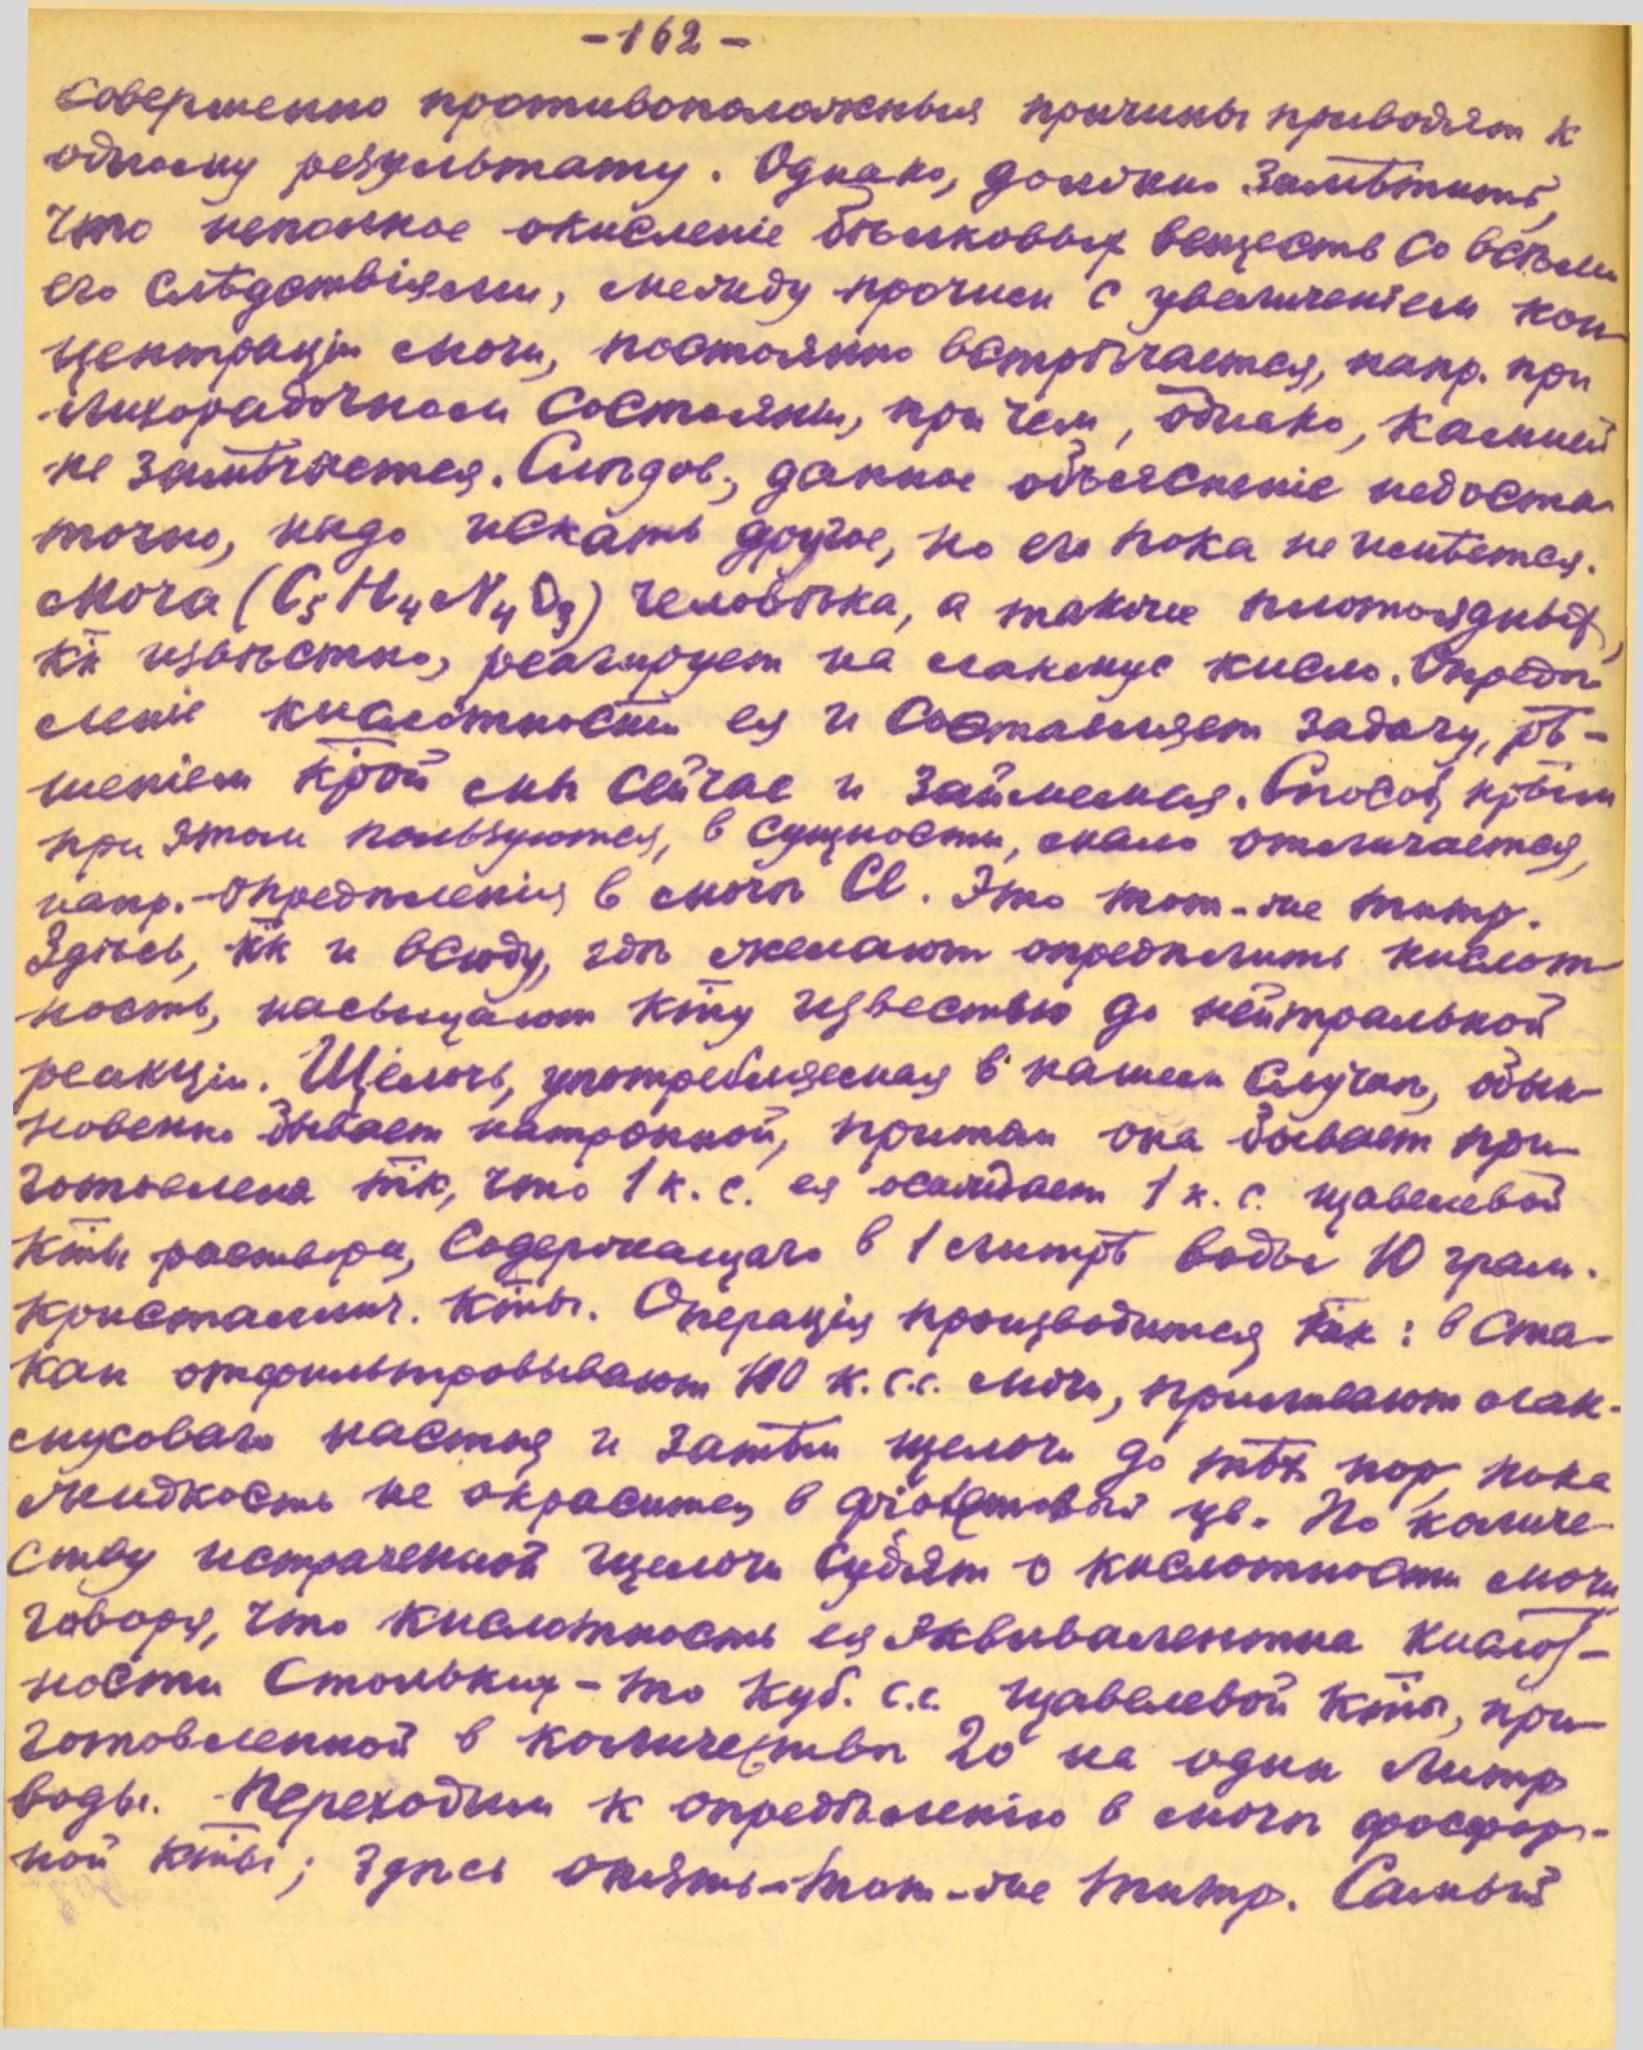 -162-
совершенно противоположныя причины приводят к
одному результату. Однако, должно замѣтить,
что неполное окисленіе бѣлковых веществ со всѣми
его слѣдствіями, между прочим с увеличеніем кон-
центраціи мочи, постоянно встрѣчается, напр. при
лихорадочном состояніи, при чем, однако, камней
не замѣчается. Слѣдов., данное объясненіе недоста-
точно, надо искать другое, но его пока не имѣется.
Моча (C5H4N4O3) человѣка, а также плотоядных,
кк извѣстно, реагирует на лакмус кисло. Опредѣ-
леніе кислотности ея и составляет задачу, рѣ-
шеніем крой мы сейчас и займемся. Способ, крым
при этом пользуются, в сущности, мало отличается,
напр.-опредѣленія в мочѣ Cl. Это тот-же титр.
Здѣсь, кк и всюду, гдѣ желают опредѣлить кислот-
ность, насыщают кту известью до нейтральной
реакціи. Щелочь, употребляемая в нашем случаѣ, обык-
новенно бывает натронной, притом она бывает при-
готовлена тк, что 1 к. с. ея осаждает 1 к. с. щавелевой
кты раствора, содержащаго в 1 литрѣ воды 10 грам.
кристаллич. кты. Операція производится так: в ста-
кан отфильтровывают 100 к. с.с. мочи, приливают лак-
мусоваго настоя и затѣм щелочи до тѣх пор, пока
жидкость не окрасится в фіолетовый цв. По количе-
ству истраченной щелочи судят о кислотности мочи
говоря, что кислотность ея эквивалентна кислот-
ности стольких-то куб. с.с. щавелевой кты, при-
готовленной в количествѣ 20 на один литр
воды. Переходим к опредѣленію в мочѣ фосфор-
ной кты; здѣсь опять-тот-же титр. Самый